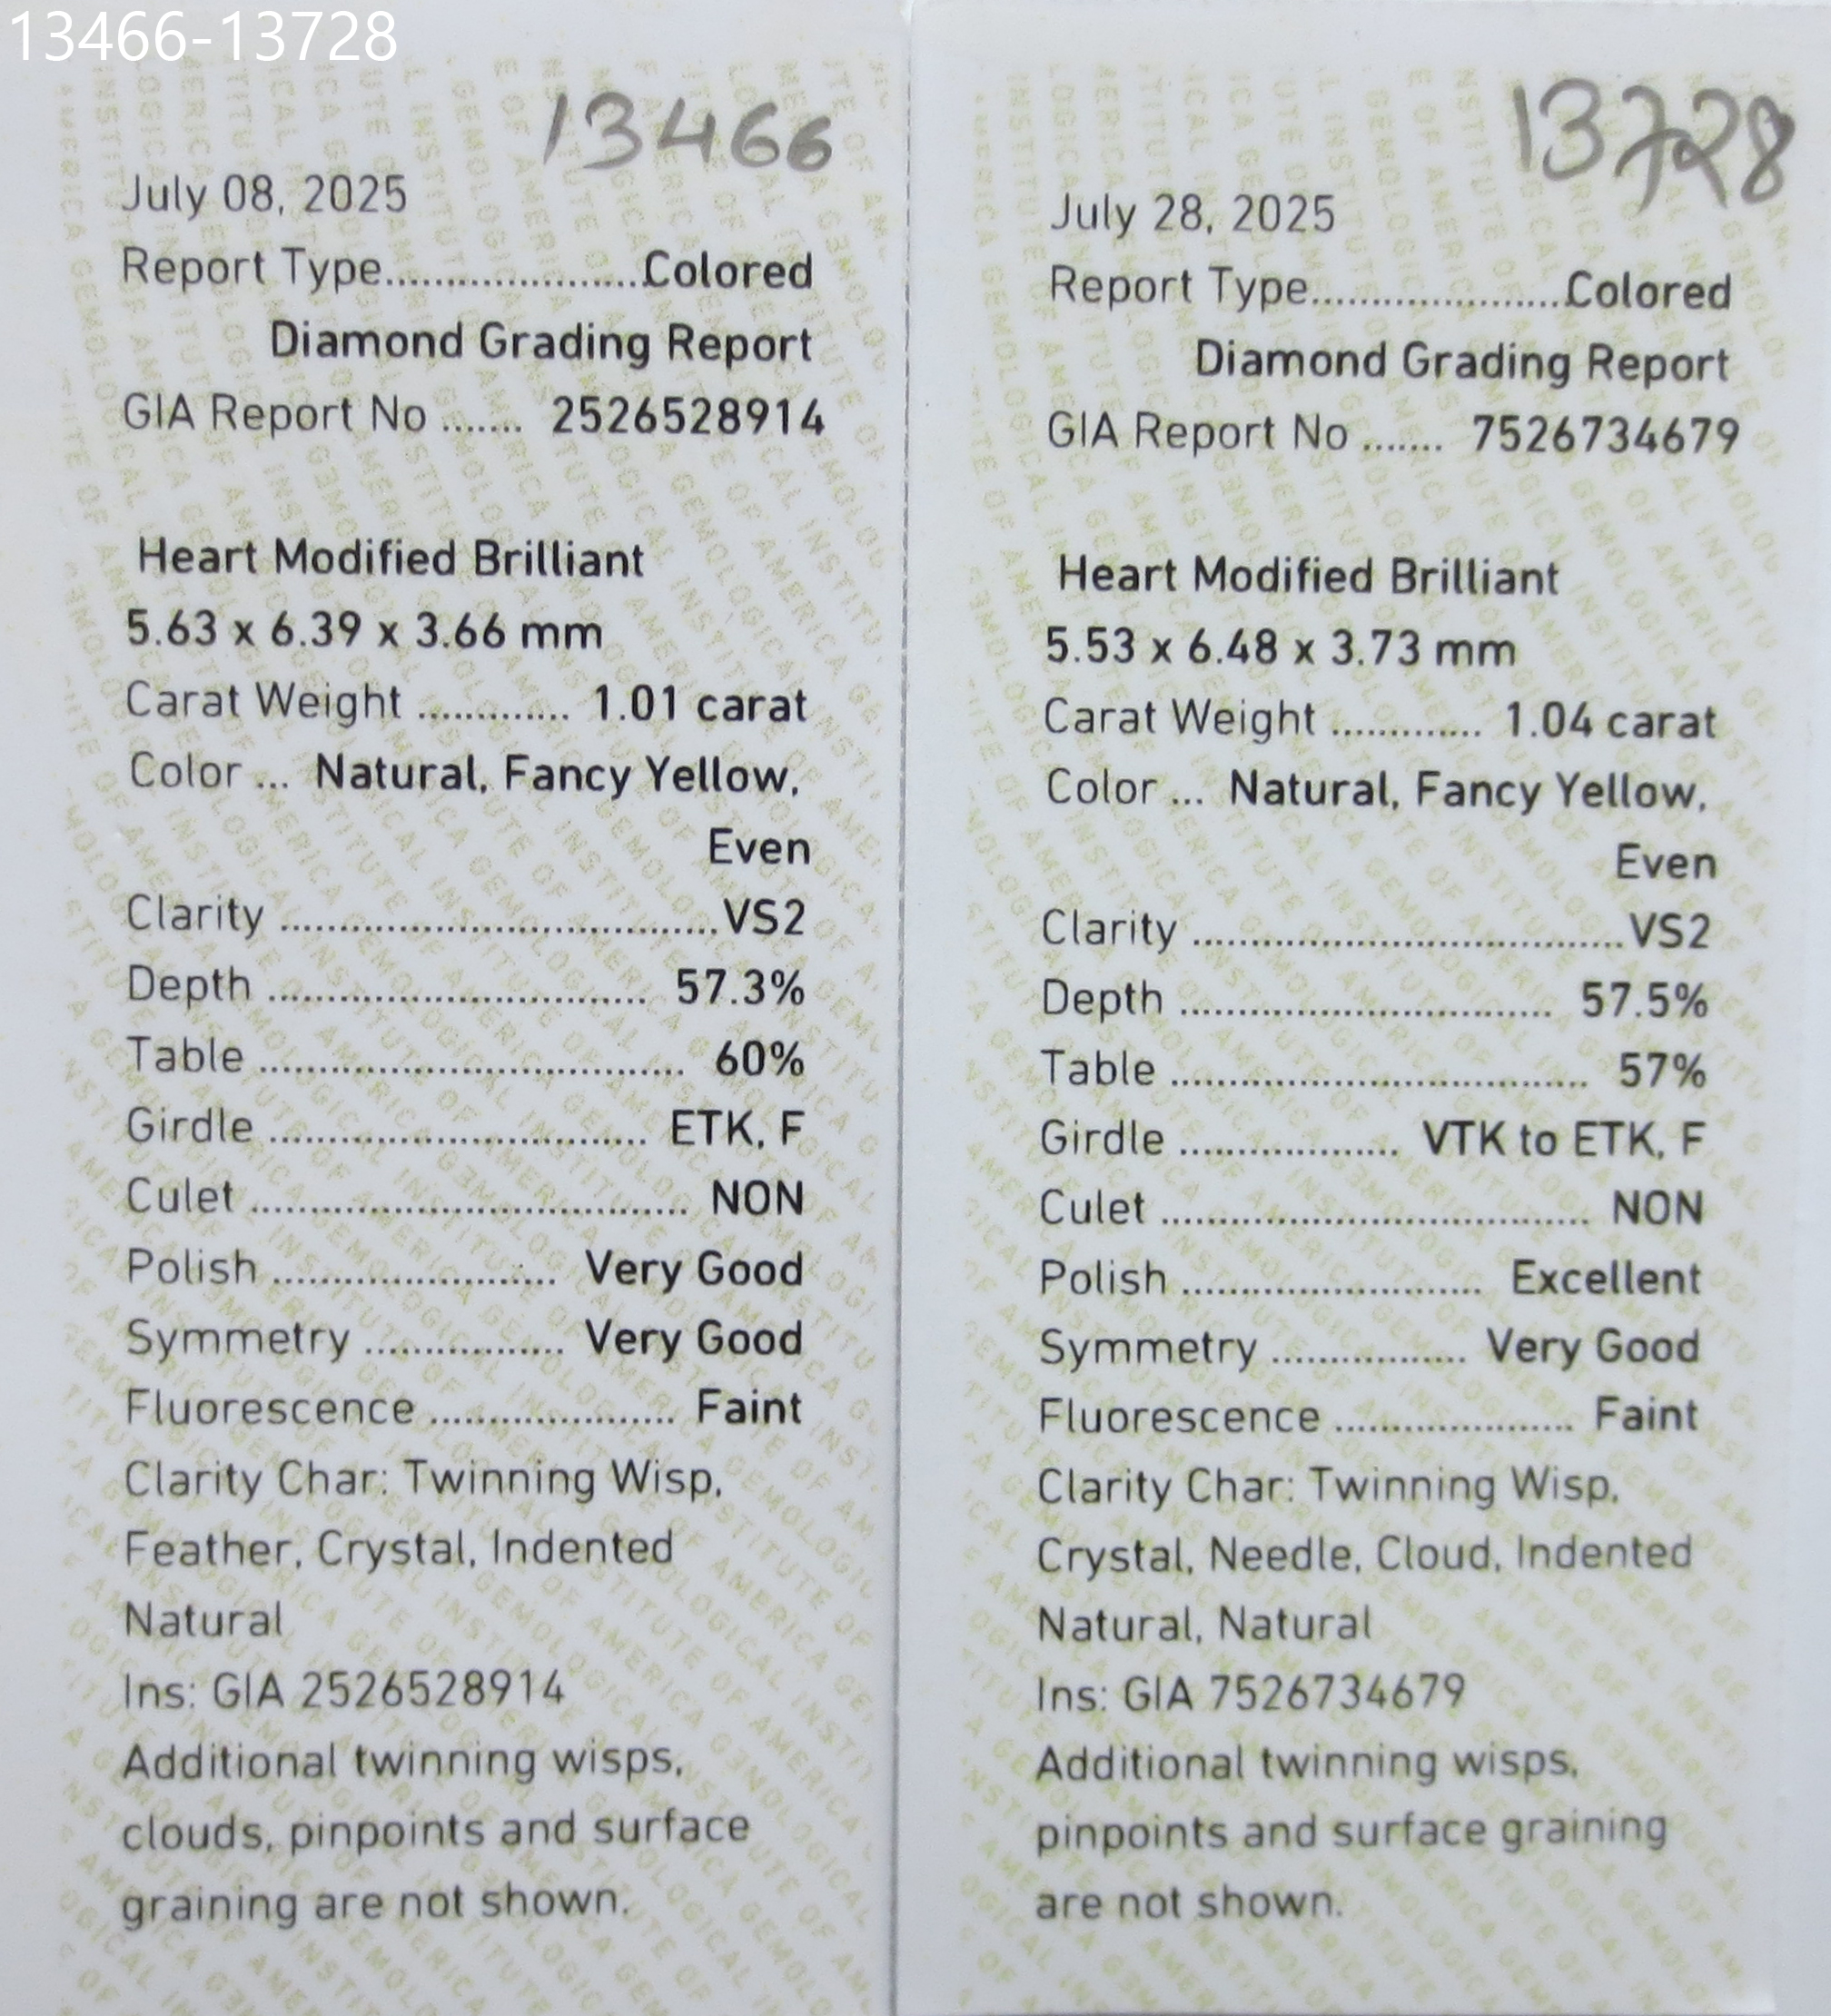 13466-13728
13466
July 08, 2025
Report Type.....................Colored
Diamond Grading Report
GIA Report No ....... 2526528914
Heart Modified Brilliant
5.63 x 6.39 x 3.66 mm
Carat Weight ............. 1.01 carat
Color ... Natural, Fancy Yellow,
Even
Clarity ....................................VS2
Depth ............................... 57.3%
Table ................................... 60%
Girdle ............................... ETK, F
Culet .................................... NON
Polish ....................... Very Good
Symmetry ................. Very Good
Fluorescence .................... Faint
Clarity Char: Twinning Wisp,
Feather, Crystal, Indented
Natural
Ins: GIA 2526528914
Additional twinning wisps,
clouds, pinpoints and surface
graining are not shown.
13728
July 28, 2025
Report Type.....................Colored
Diamond Grading Report
GIA Report No ....... 7526734679
Heart Modified Brilliant
5.53 x 6.48 x 3.73 mm
Carat Weight ............. 1.04 carat
Color ... Natural, Fancy Yellow,
Even
Clarity ....................................VS2
Depth ............................... 57.5%
Table ................................... 57%
Girdle .................. VTK to ETK, F
Culet .................................... NON
Polish ......................... Excellent
Symmetry ................. Very Good
Fluorescence .................... Faint
Clarity Char: Twinning Wisp,
Crystal, Needle, Cloud, Indented
Natural, Natural
Ins: GIA 7526734679
Additional twinning wisps,
pinpoints and surface graining
are not shown.